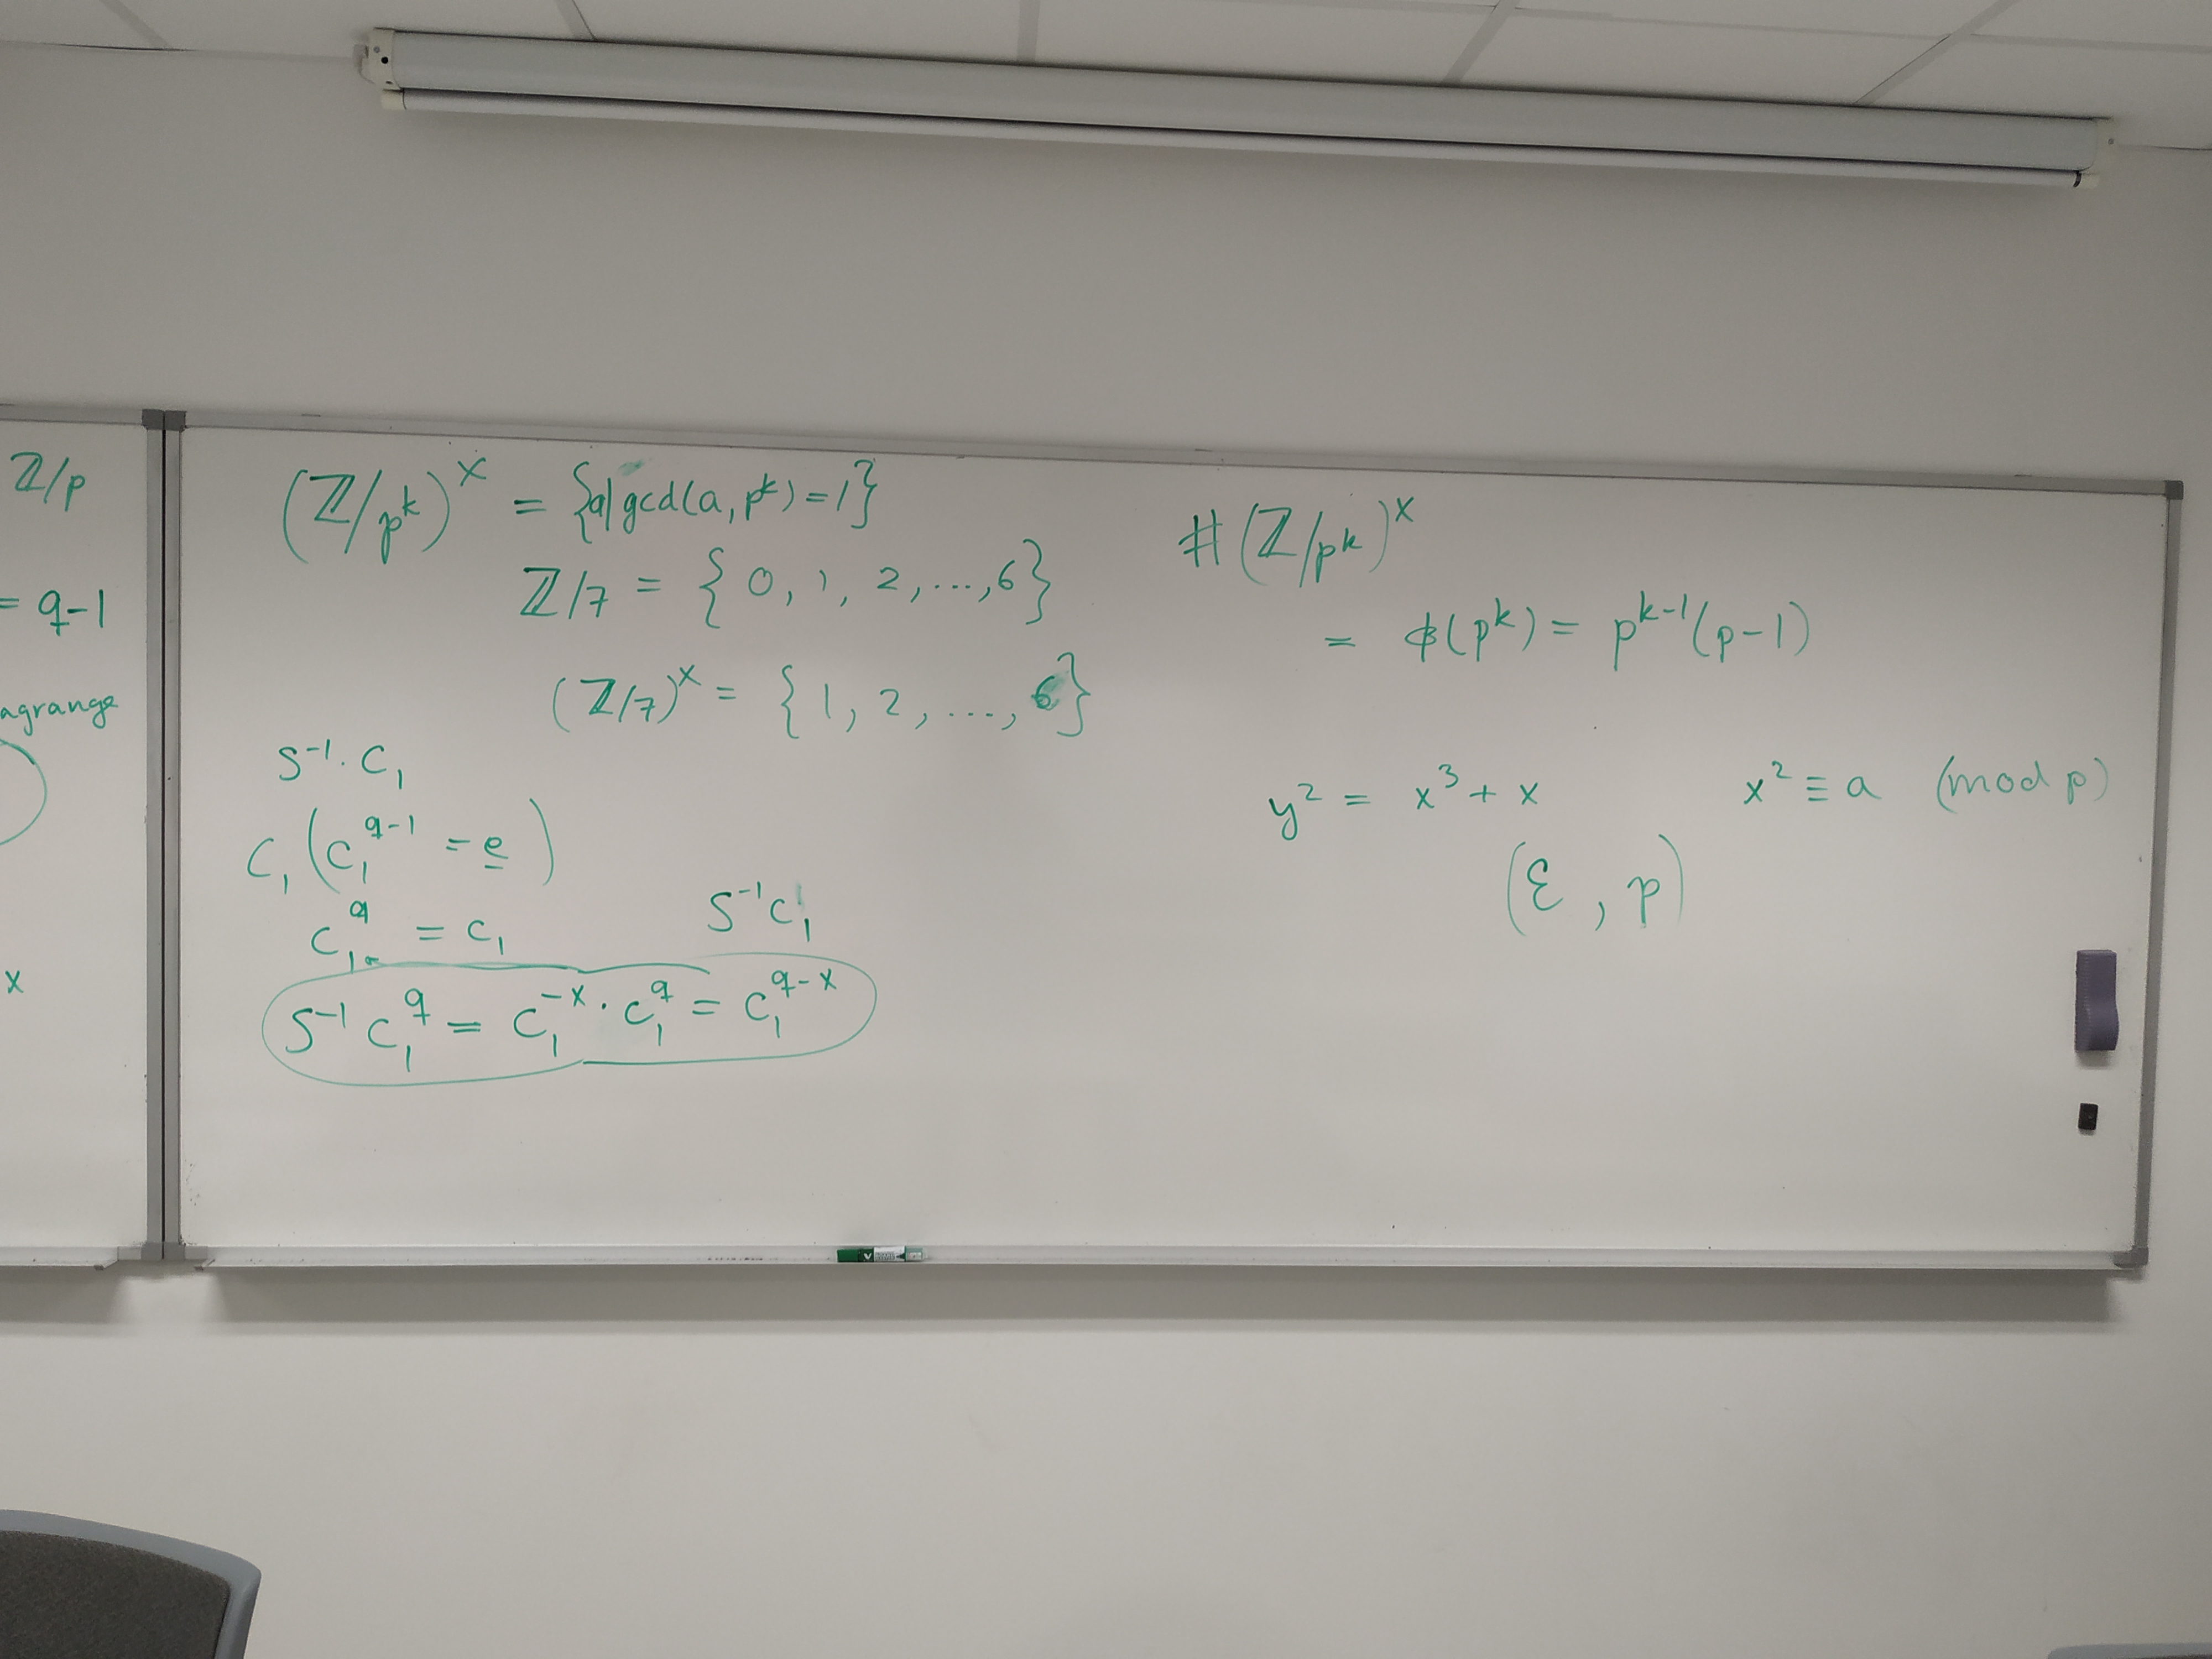 ℤ/p
= q-1
agrange
x
(ℤ/p^k)^x = {a|gcd(a, p^k) = 1}
ℤ/7 = { 0, 1, 2, ..., 6}
(ℤ/7)^x = { 1, 2, ..., 6}
S^-1 · C_1
C_1 (C_1^{q-1} = e)
C_1^q = C_1
S^-1 C_1
S^-1 C_1^q = C_1^{-x} · C_1^q = C_1^{q-x}
#(ℤ/p^k)^x
= ϕ(p^k) = p^{k-1}(p-1)
y^2 = x^3 + x
x^2 ≡ a (mod p)
(Ɛ, p)